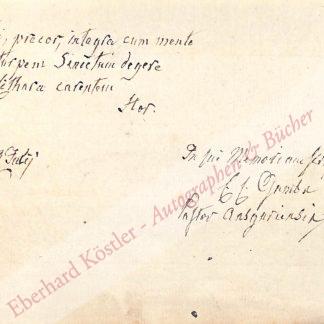 precor, integra cum mente
turpem Senectum degere
Cithara carentem
Hor.
Julij
In sui Memoriam
Pastor Ansgariensis
Eberhard Köstler - Autographen & Bücher